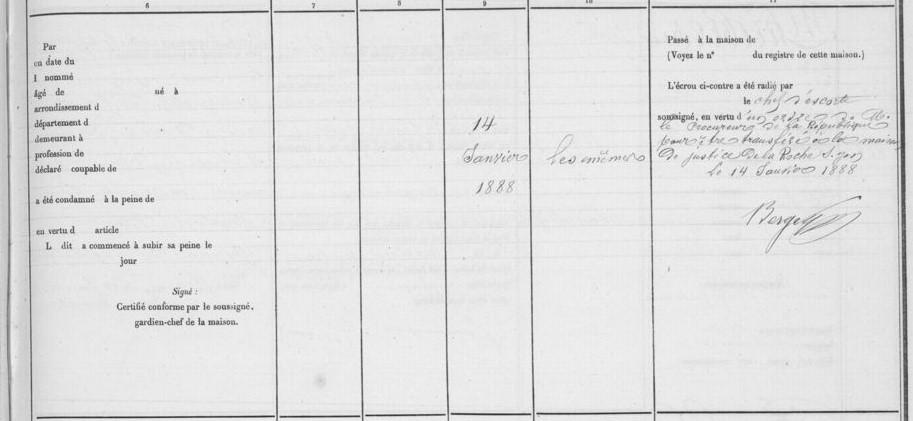 6 7 8 9 10 11
Par
en date du
l nommé
âgé de né à
arrondissement d
département d
demeurant à
profession de
déclaré coupable de
a été condamné à la peine de
en vertu d article
L dit a commencé à subir sa peine le
jour
Signé :
Certifié conforme par le soussigné,
gardien-chef de la maison.
14
Janvier
1888
Les mêmes
Passé à la maison de
(Voyez le n° du registre de cette maison.)
L'écrou ci-contre a été radié par
le chef d'escorte
soussigné, en vertu d'un ordre de M.
le Procureur de la République
pour être transféré à la maison
de justice de la Roche S. Yon
le 14 Janvier 1888